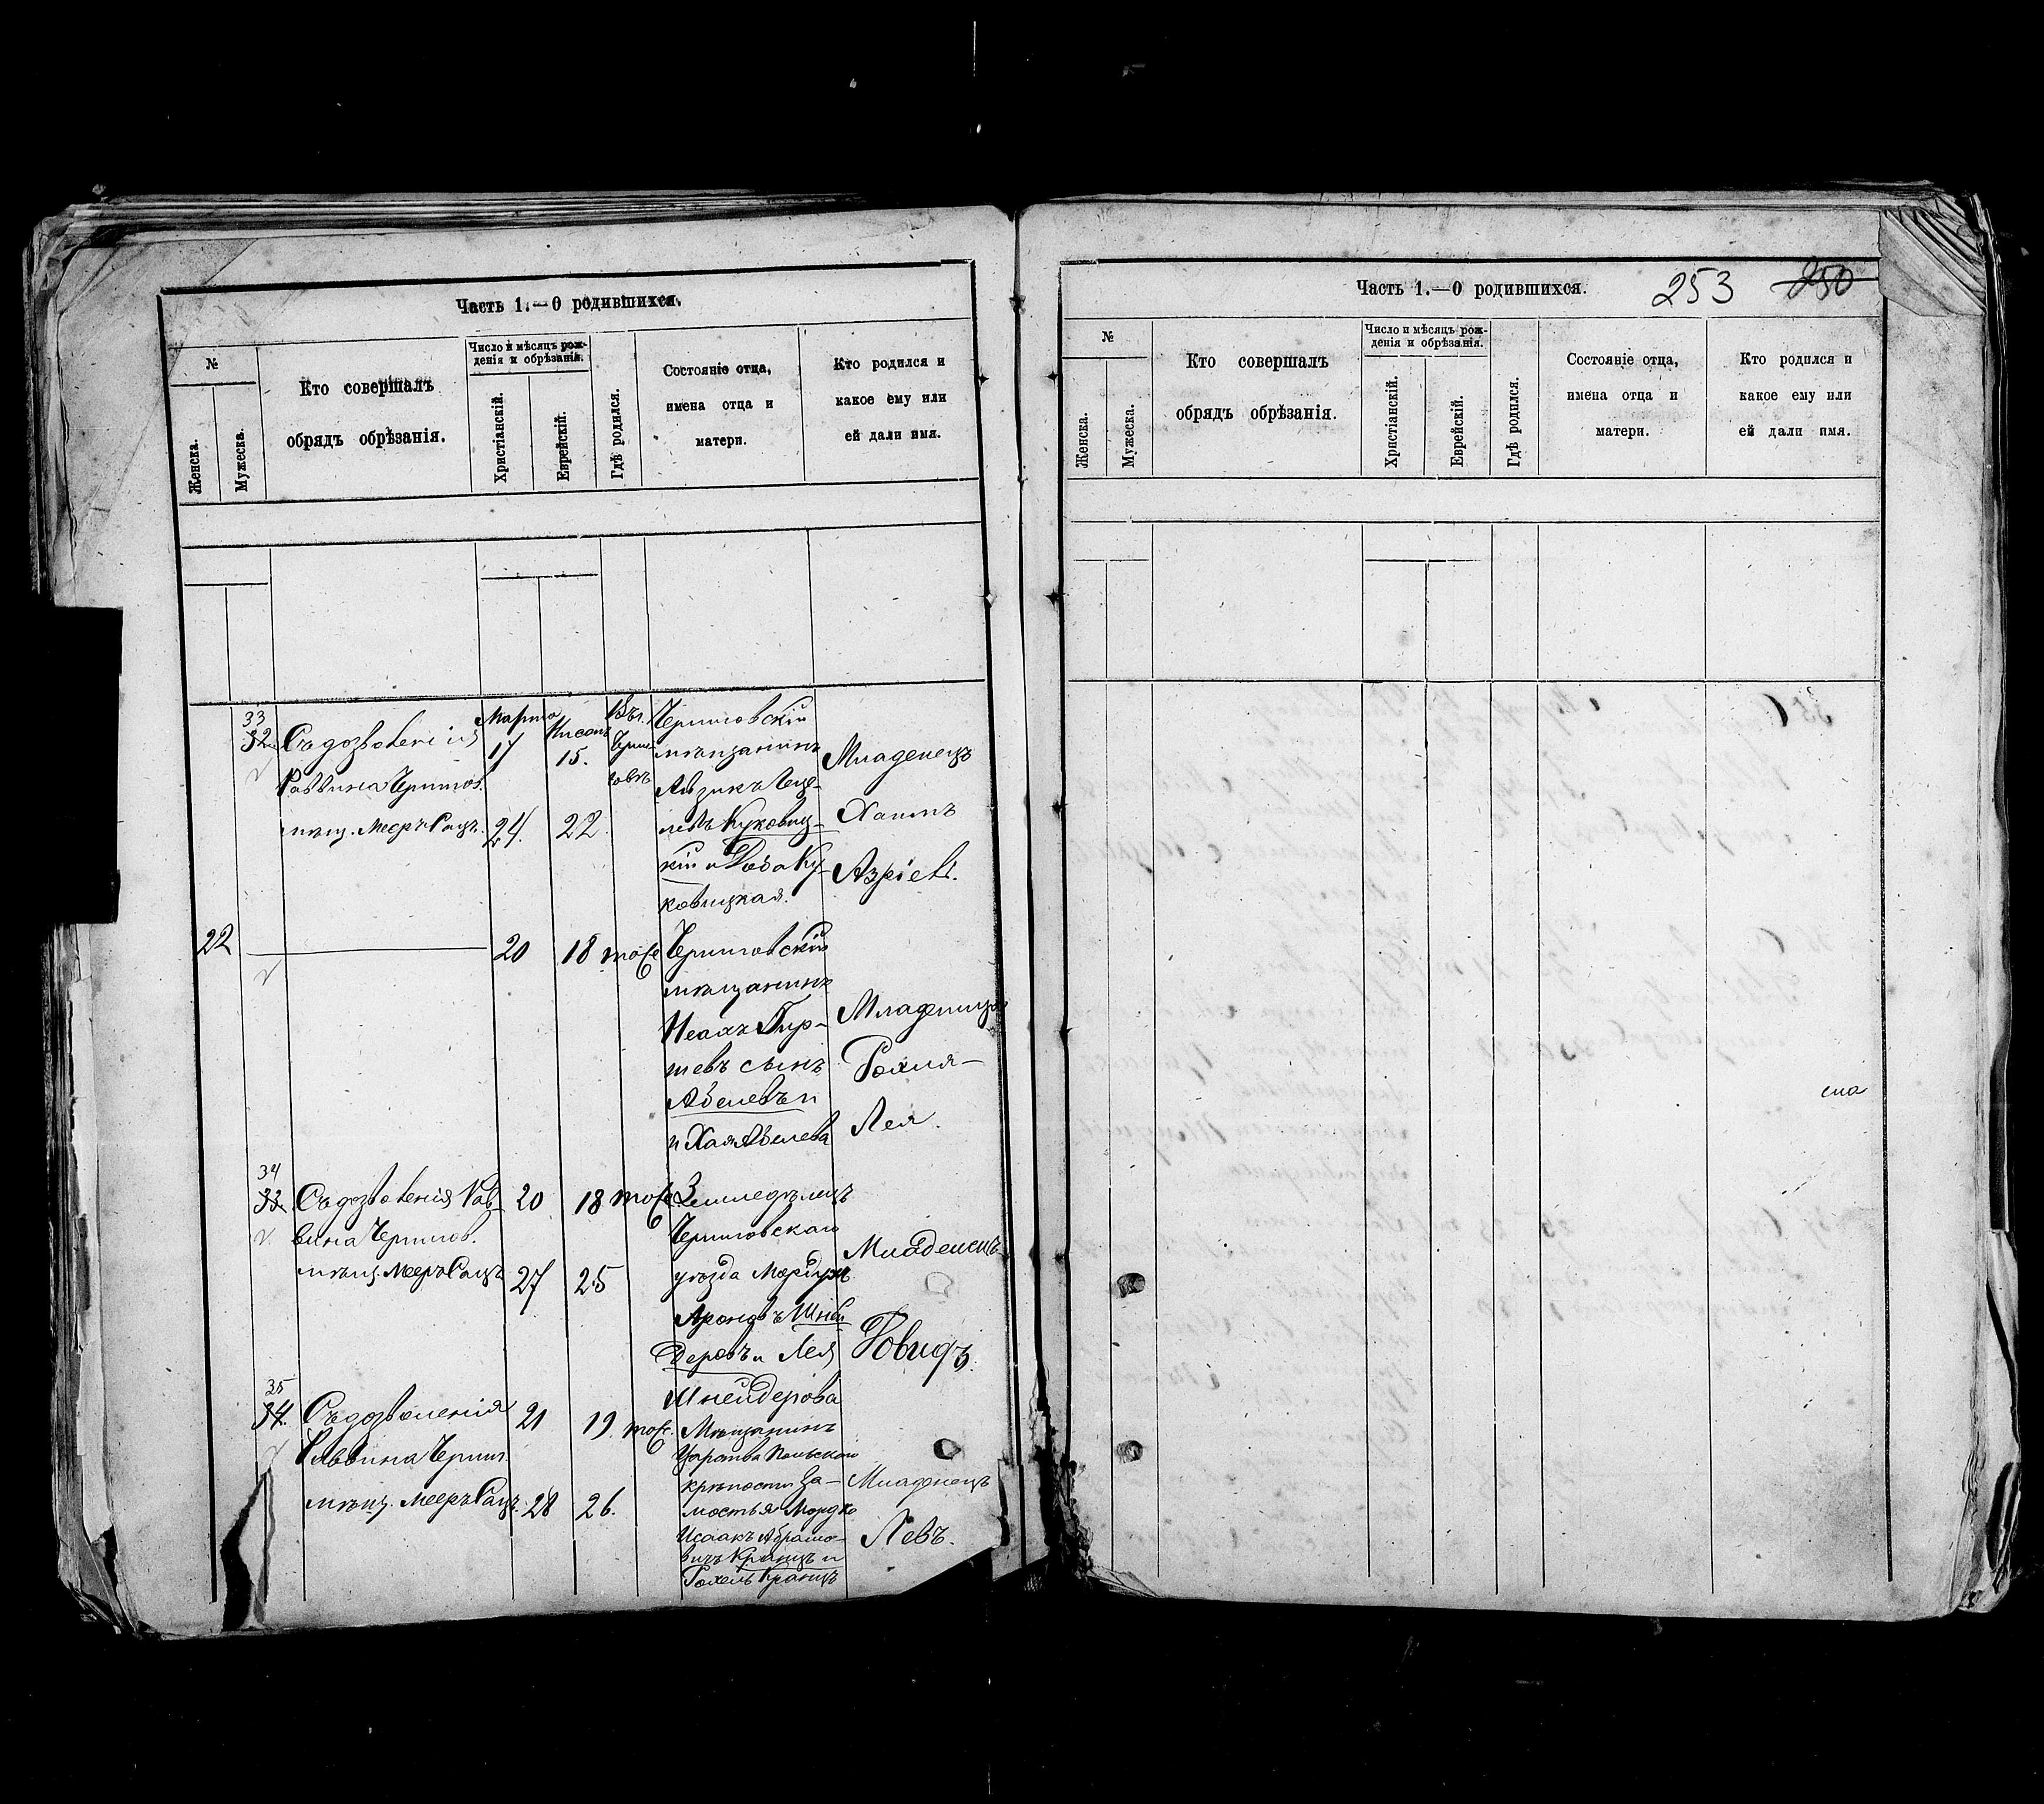 Часть 1.—О родившихся.
№
Женска.
Мужеска.
Кто совершалъ
обрядъ обрѣзанія.
Число и мѣсяцъ рож-
денія и обрѣзанія.
Христіанскій.
Еврейскій.
Гдѣ родился.
Состояніе отца,
имена отца и
матери.
Кто родился и
какое ему или
ей дали имя.
33
32
Съ дозволенія
Раввина Чернигов.
мѣщ. Мееръ Кацъ.
Марта
17
24.
Нисанъ
15.
22.
Въ г.
Черни-
говѣ
Черниговскій
мѣщанинъ
Айзикъ
Куковиц-
кій и Ку-
ковицкая.
Младенецъ
Хаимъ
Азріель.
22
20
18
тоже
Черниговскій
мѣщанинъ
Исаакъ Гир-
шевъ сынъ
Абелевъ и
и Хая Абелева
Младеница
Рохля-
Лея.
34
33.
Съ дозволенія Рав-
вина Чернигов.
мѣщ. Мееръ Кацъ
20
27
18
25
тоже
Земледѣлецъ
Черниговскаго
уѣзда Мордухъ
Ароновъ Шней
деровъ и Лея
Шнейдерова
Младенецъ
Довидъ.
35
34.
Съ дозволенія
Раввина Черниг.
мѣщ. Мееръ Кацъ.
21
28
19.
26.
тоже.
Мѣщанинъ
Царства Польскаго
крѣпости За-
мостья Мордко
Исаакъ Абрамо-
вичъ Кранцъ и
Рохель Кранцъ
Младенецъ
Левъ.
Часть 1.—О родившихся.
253
250
№
Женска.
Мужеска.
Кто совершалъ
обрядъ обрѣзанія.
Число и мѣсяцъ рож-
денія и обрѣзанія.
Христіанскій.
Еврейскій.
Гдѣ родился.
Состояніе отца,
имена отца и
матери.
Кто родился и
какое ему или
ей дали имя.